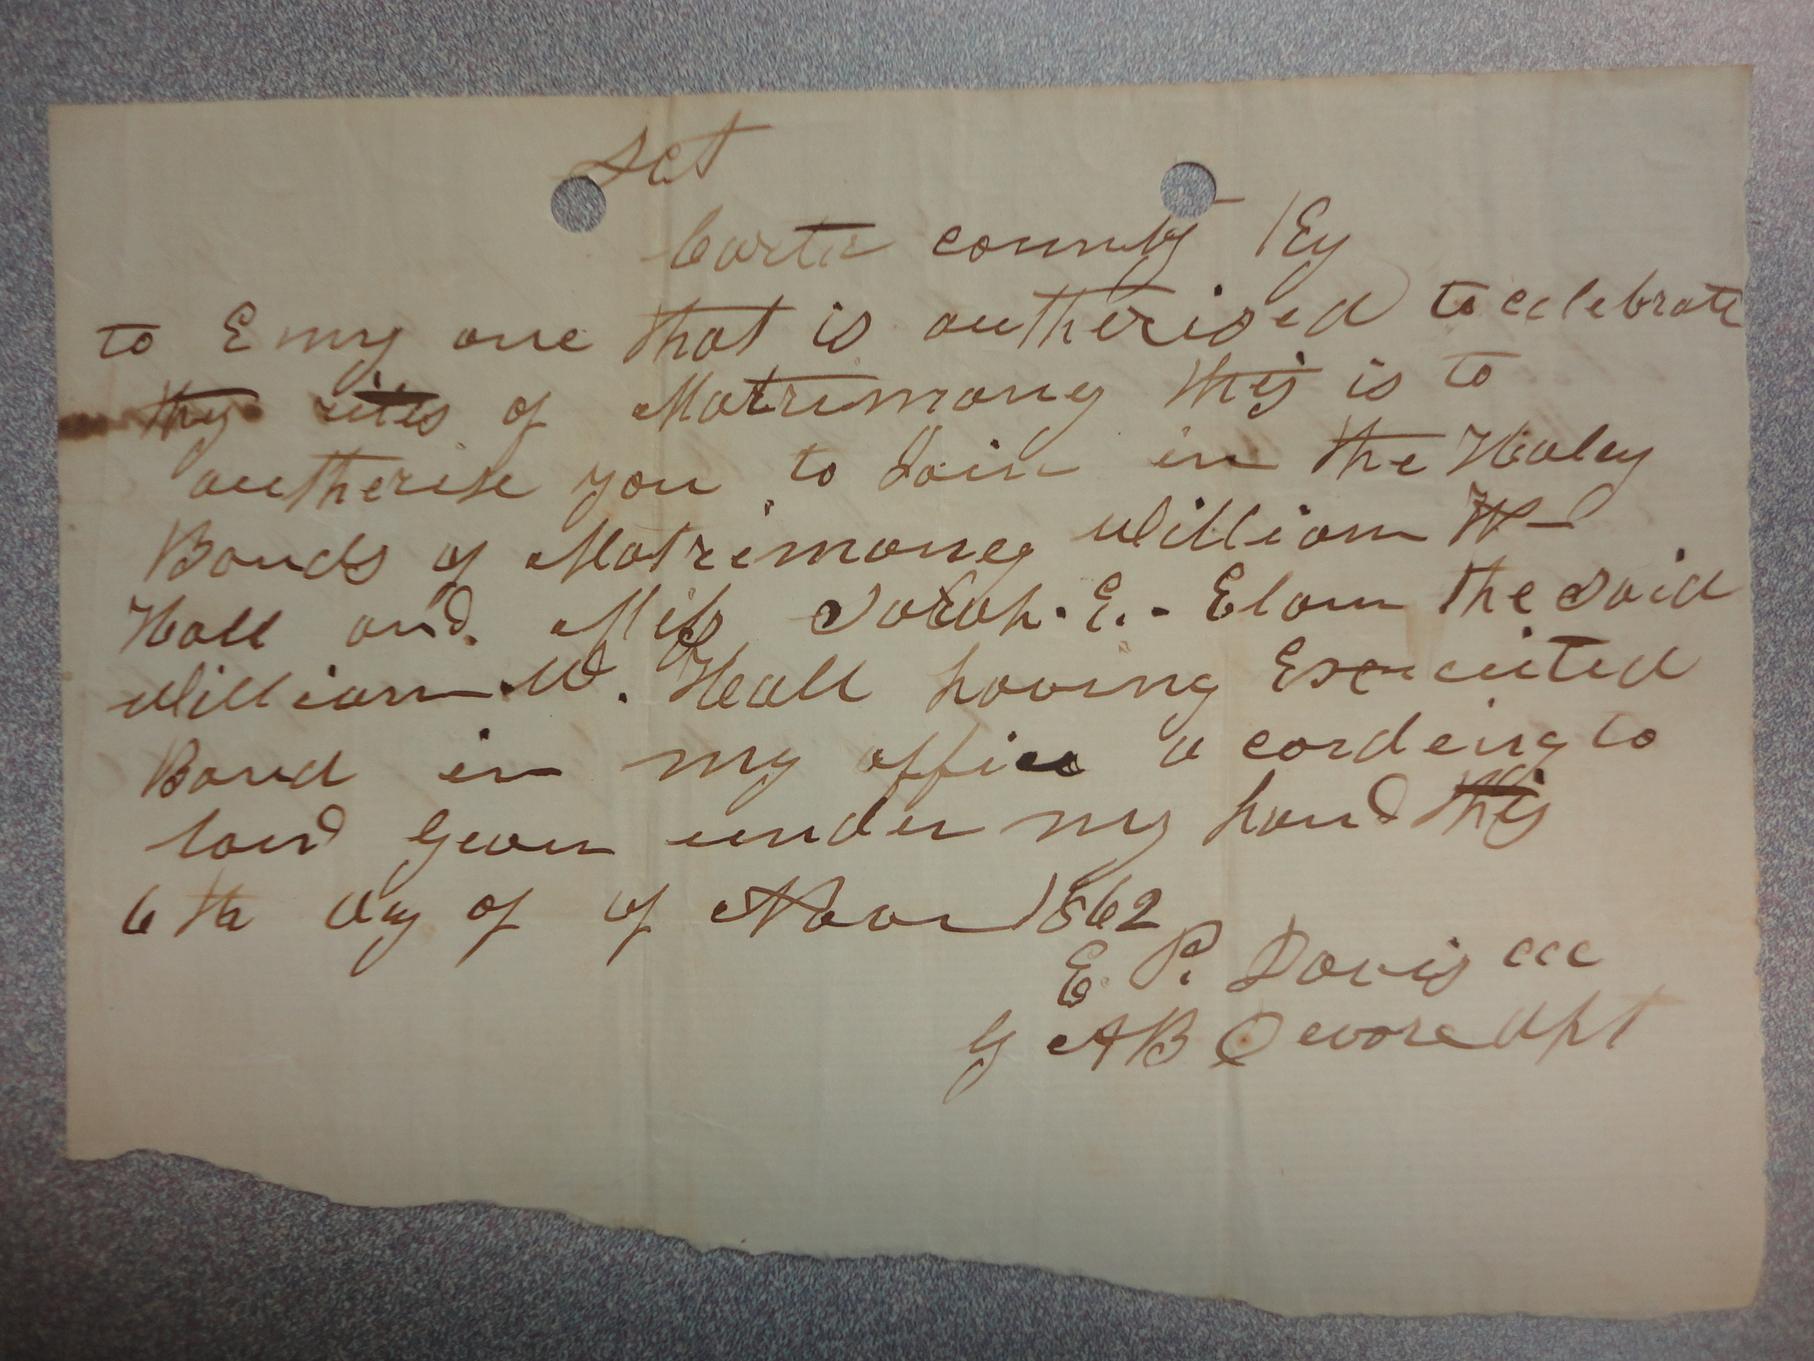 Sct
Carter county Ky
to Enny one that is autherised to celebrate
the rites of Matrimony this is to
autherise you to Join in the Holey
Bonds of Matrimoney William W
Hall and Miss Sarah. E. Elam the said
William W. Hall having Executed
Bond in my office acording to
law given under my hand this
6th day of of Novr 1862
E. P. Davis ccc
By AB Devore dpt